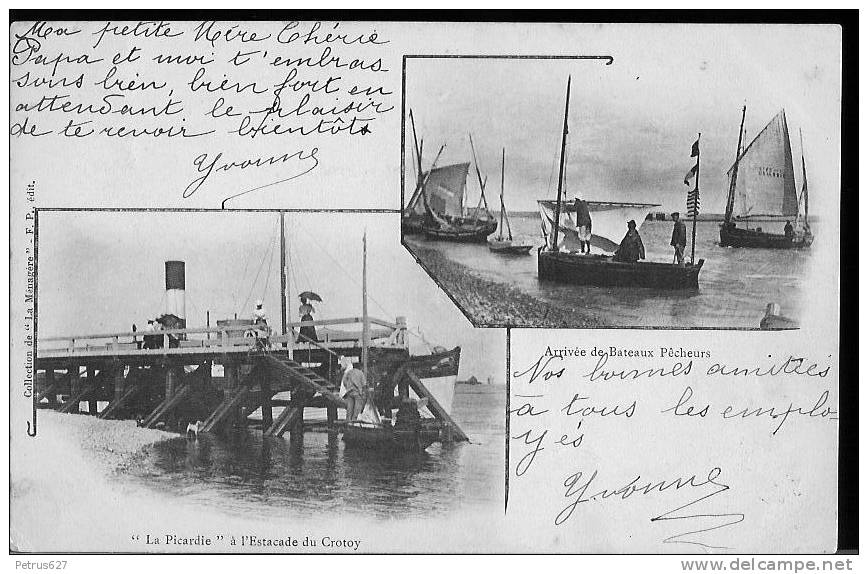 Ma petite Mère Chérie
Papa et moi t'embras
sons bien, bien fort, en
attendant le plaisir
de te revoir bientôts
Yvonne
Collection de "La Ménagère" - F. P., édit.
Arrivée de Bateaux Pêcheurs
Nos bonnes amitiés
à tous les emplo-
yés
Yvonne
"La Picardie" à l'Estacade du Crotoy
Petrus627
www.delcampe.net